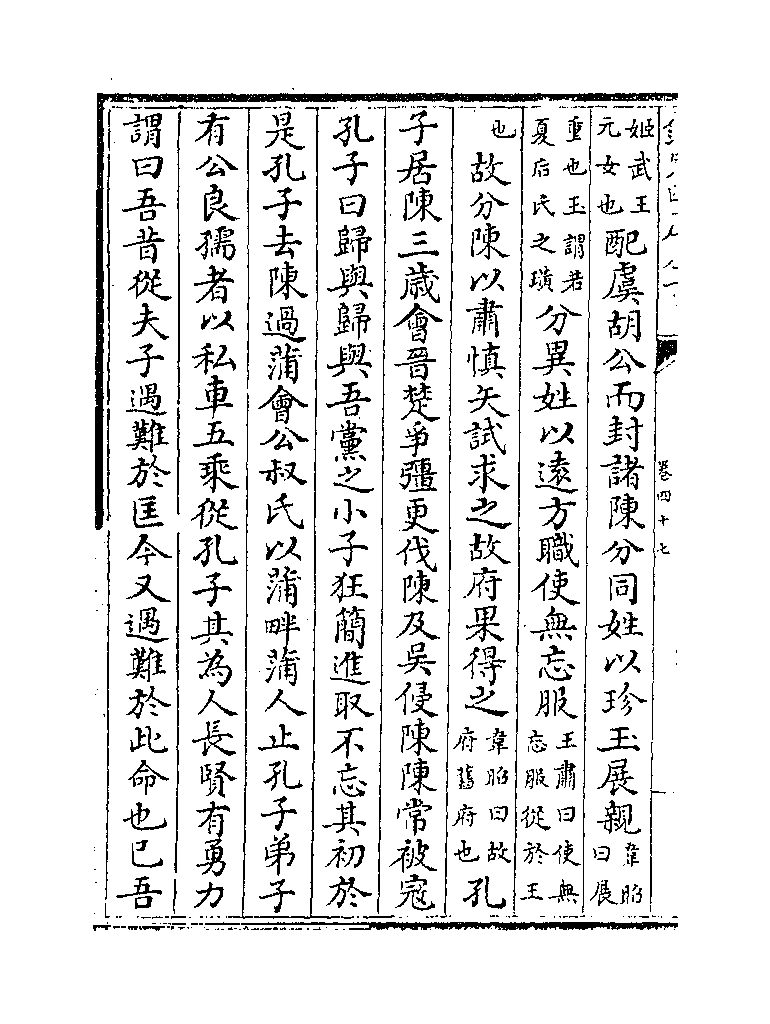 姬武王元女也配虞胡公而封諸陳分同姓以珍玉展親韋昭曰展
重也玉謂若夏后氏之璜分異姓以遠方職使無忘服王肅曰使無忘服從於王
也故分陳以肅慎矢試求之故府果得之韋昭曰故府舊府也孔
子居陳三歲會晉楚爭彊更伐陳及吳侵陳陳常被寇
孔子曰歸與歸與吾黨之小子狂簡進取不忘其初於
是孔子去陳過蒲會公叔氏以蒲畔蒲人止孔子弟子
有公良孺者以私車五乘從孔子其為人長賢有勇力
謂曰吾昔從夫子遇難於匡今又遇難於此命也已吾
卷四十七